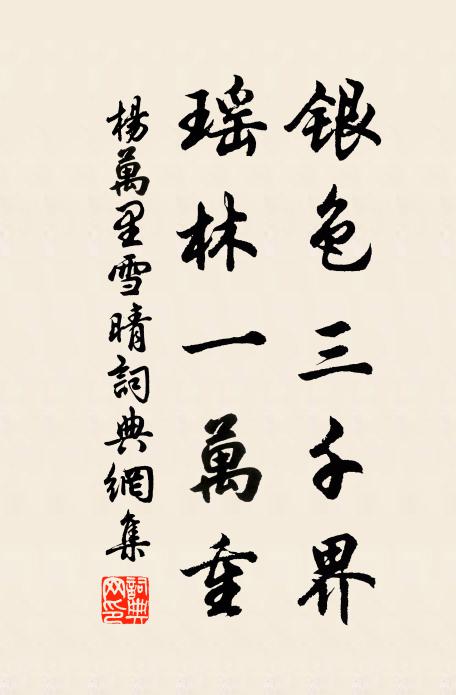 銀色三千界
瑶林一萬重
楊萬里雪晴詞典網集
詞典網印